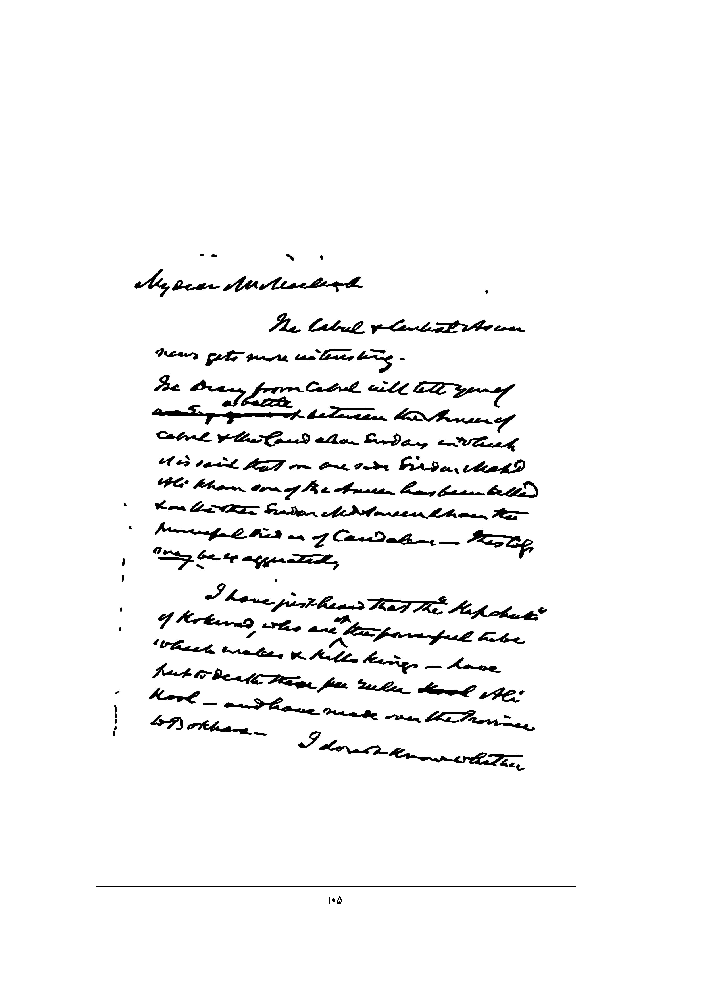 My dear
The Cabul & Central Asian
news gets more interesting -
The Diary from Cabul will tell you of
a battle
between the Ameer of
Cabul & the Candahar Sirdars in which
it is said that on one side Sirdar Mahd
Ali Khan son of the Ameer has been killed
& on the other Sirdar Md Ameen Khan the
of Candahar — This
may be exaggerated,
I have just heard that the "Kipchaks"
of Kokand, who are the powerful tribe
which makes & kills Kings — have
put to death ruler Ali
Kool — and have made over the Province
to Bokhara — I do not know whether
۱۰۵